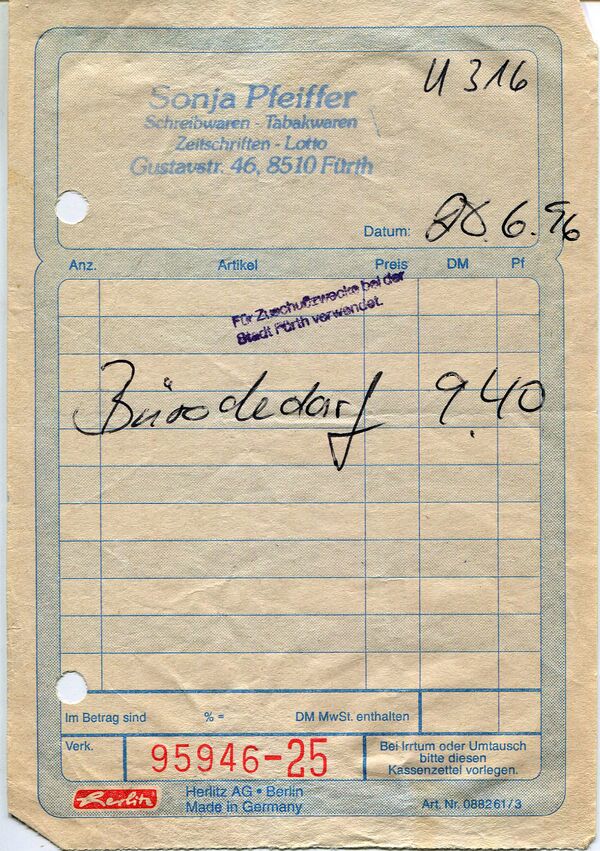 U 316
Sonja Pfeiffer
Schreibwaren - Tabakwaren
Zeitschriften - Lotto
Gustavstr. 46, 8510 Fürth
Datum: 28.6.96
Anz. Artikel Preis DM Pf
Für Zuschußzwecke bei der
Stadt Fürth verwendet.
Bürobedarf 9.40
Im Betrag sind % = DM MwSt. enthalten
Verk. 95946-25
Bei Irrtum oder Umtausch
bitte diesen
Kassenzettel vorlegen.
Herlitz
Herlitz AG • Berlin
Made in Germany
Art. Nr. 088261/3